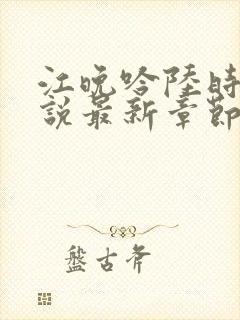 江晚吟陸時
說最新章節
盤古斧